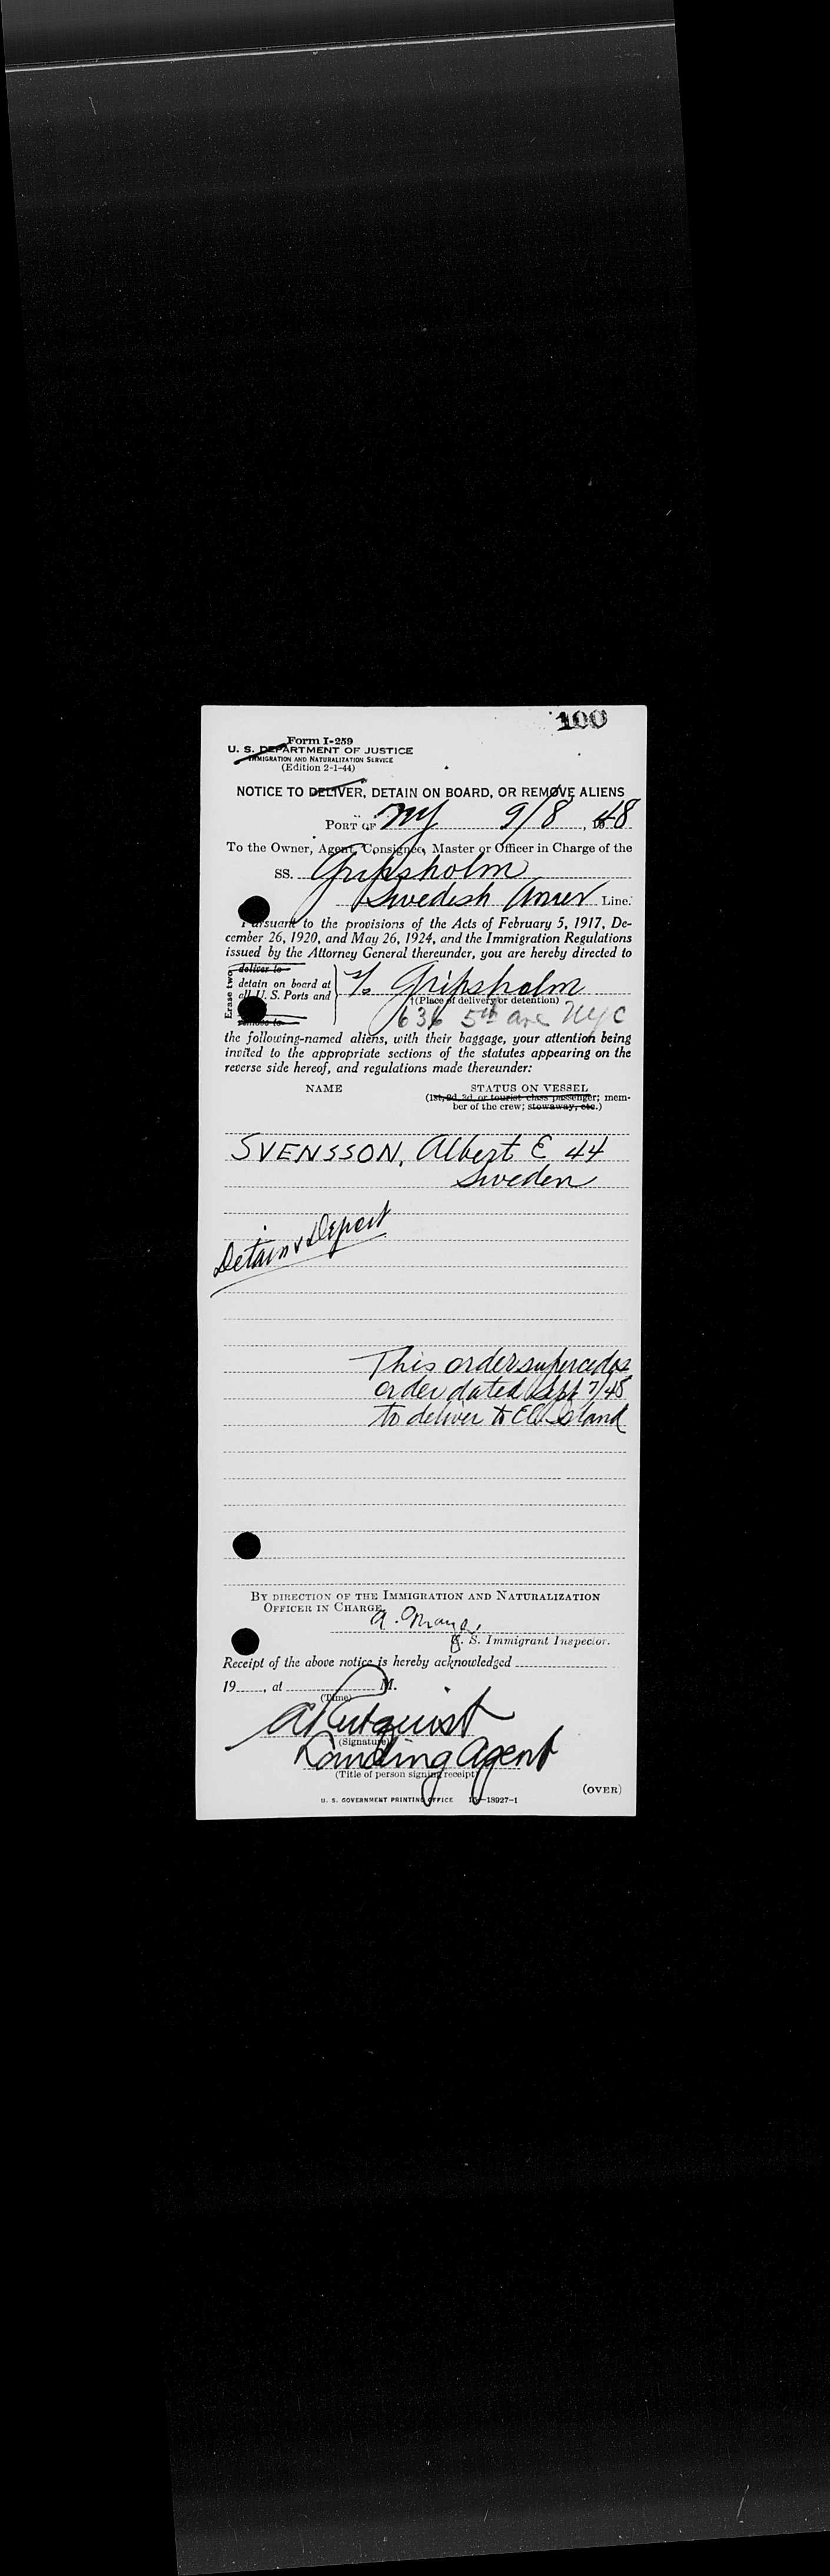 100
Form I-259
U. S. DEPARTMENT OF JUSTICE
IMMIGRATION AND NATURALIZATION SERVICE
(Edition 2-1-44)
NOTICE TO DELIVER, DETAIN ON BOARD, OR REMOVE ALIENS
PORT OF NY 9/8, 1948
To the Owner, Agent, Consignee, Master or Officer in Charge of the
SS. Gripsholm
Swedish Amer Line.
Pursuant to the provisions of the Acts of February 5, 1917, De-
cember 26, 1920, and May 26, 1924, and the Immigration Regulations
issued by the Attorney General thereunder, you are hereby directed to
Erase two
deliver to
detain on board at
all U. S. Ports and
remove to
Gripsholm
†(Place of delivery or detention)
636 5th ave NYC
the following-named aliens, with their baggage, your attention being
invited to the appropriate sections of the statutes appearing on the
reverse side hereof, and regulations made thereunder:
NAME STATUS ON VESSEL
(1st, 2d, 3d, or tourist class passenger; mem-
ber of the crew; stowaway, etc.)
SVENSSON, Albert E 44
Sweden
Detain & Deport
This order supercedes
order dated Sept 7/48
to deliver to Ell Island
BY DIRECTION OF THE IMMIGRATION AND NATURALIZATION
OFFICER IN CHARGE
U. S. Immigrant Inspector.
Receipt of the above notice is hereby acknowledged
19 , at M.
(Time)
(Signature)
Landing Agent
(Title of person signing receipt)
(OVER)
U. S. GOVERNMENT PRINTING OFFICE 16—18927-1